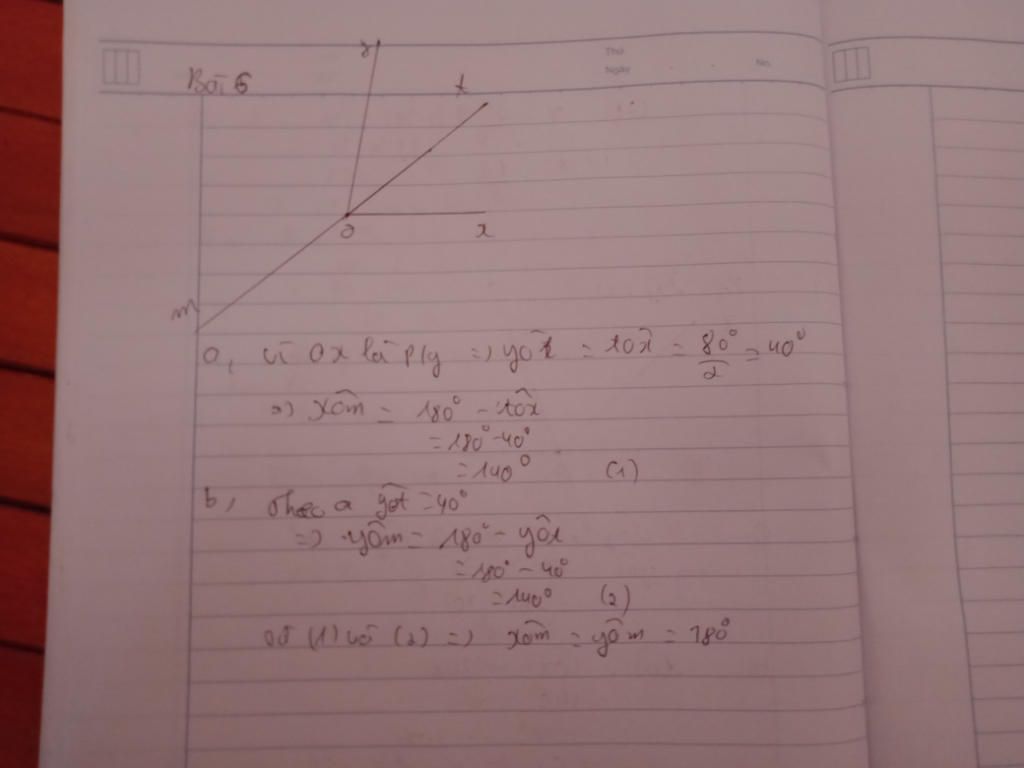 Thứ
Ngày
No.
Bài 6
y
t
O
x
m
a, vì Ox là p/g => yôt = tôx = 80°/2 = 40°
=> xôm = 180° - tôx
= 180° - 40°
= 140° (1)
b, theo a yôt = 40°
=> yôm = 180° - yôt
= 180° - 40°
= 140° (2)
từ (1) và (2) => xôm = yôm = 180°